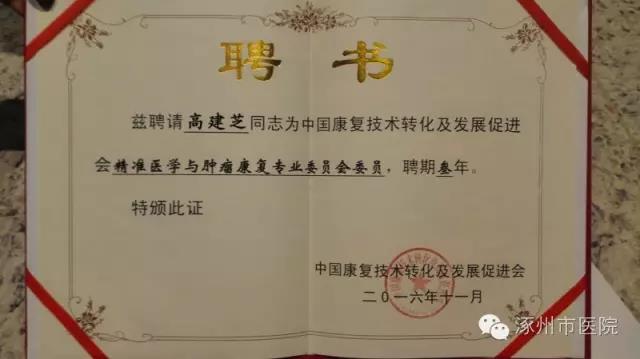 聘 书
兹聘请高建芝同志为中国康复技术转化及发展促进
会精准医学与肿瘤康复专业委员会委员，聘期叁年。
特颁此证
中国康复技术转化及发展促进会
二〇一六年十一月
涿州市医院